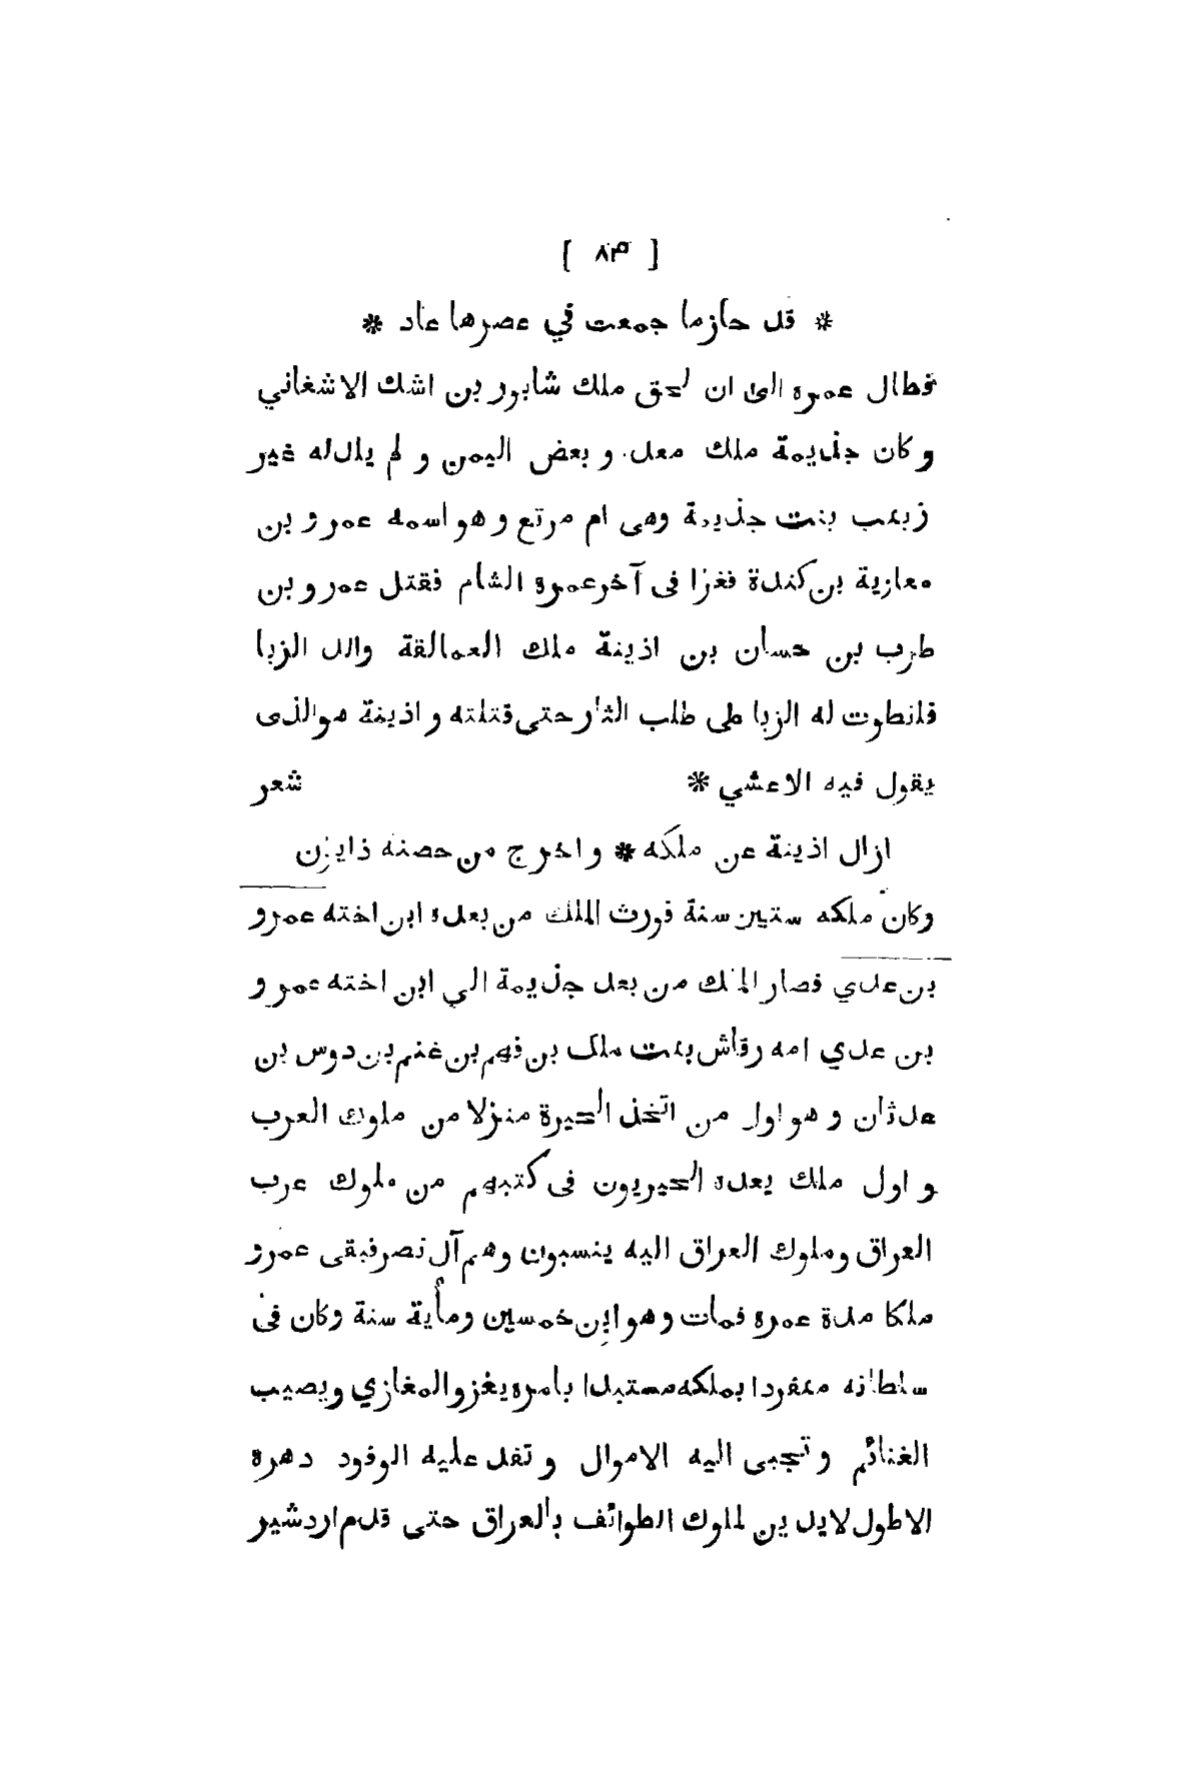 [ ٨٣ ]
* قد حازما جمعت في عصرها عاد *
فطال عمره الى ان لحق ملك شابور بن اشك الاشغاني
وكان جذيمة ملك معد و بعض اليمن و لم يلد له غير
زينب بنت جذيمة وهى ام مرتع و هو اسمه عمرو بن
معازية بن كندة فغزا فى آخر عمره الشام فقتل عمرو بن
طرب بن حسان بن اذينة ملك العمالقة والد الزبا
فانطوت له الزبا على طلب الثار حتى قتلته و اذينة هو الذى
يقول فيه الاعشي * شعر
ازال اذينة عن ملكه * و اخرج من حصنه ذايزن
وكان ملكه ستين سنة فورث الملك من بعده ابن اخته عمرو
بن عدي فصار الملك من بعد جذيمة الي ابن اخته عمرو
بن عدي امه رقاش بنت ملك بن فهم بن غنم بن دوس بن
عدثان و هو اول من اتخذ الحيرة منزلا من ملوك العرب
و اول ملك يعده الحيريون فى كتبهم من ملوك عرب
العراق وملوك العراق اليه ينسبون وهم آل نصر فبقى عمرو
ملكا مدة عمره فمات وهو ابن خمسين ومأية سنة وكان فى
سلطانه منفردا بملكه مستبدا بامره يغزو المغازي ويصيب
الغنائم و تجبى اليه الاموال و تفد عليه الوفود دهره
الاطول لا يدين لملوك الطوائف بالعراق حتى قدم اردشير